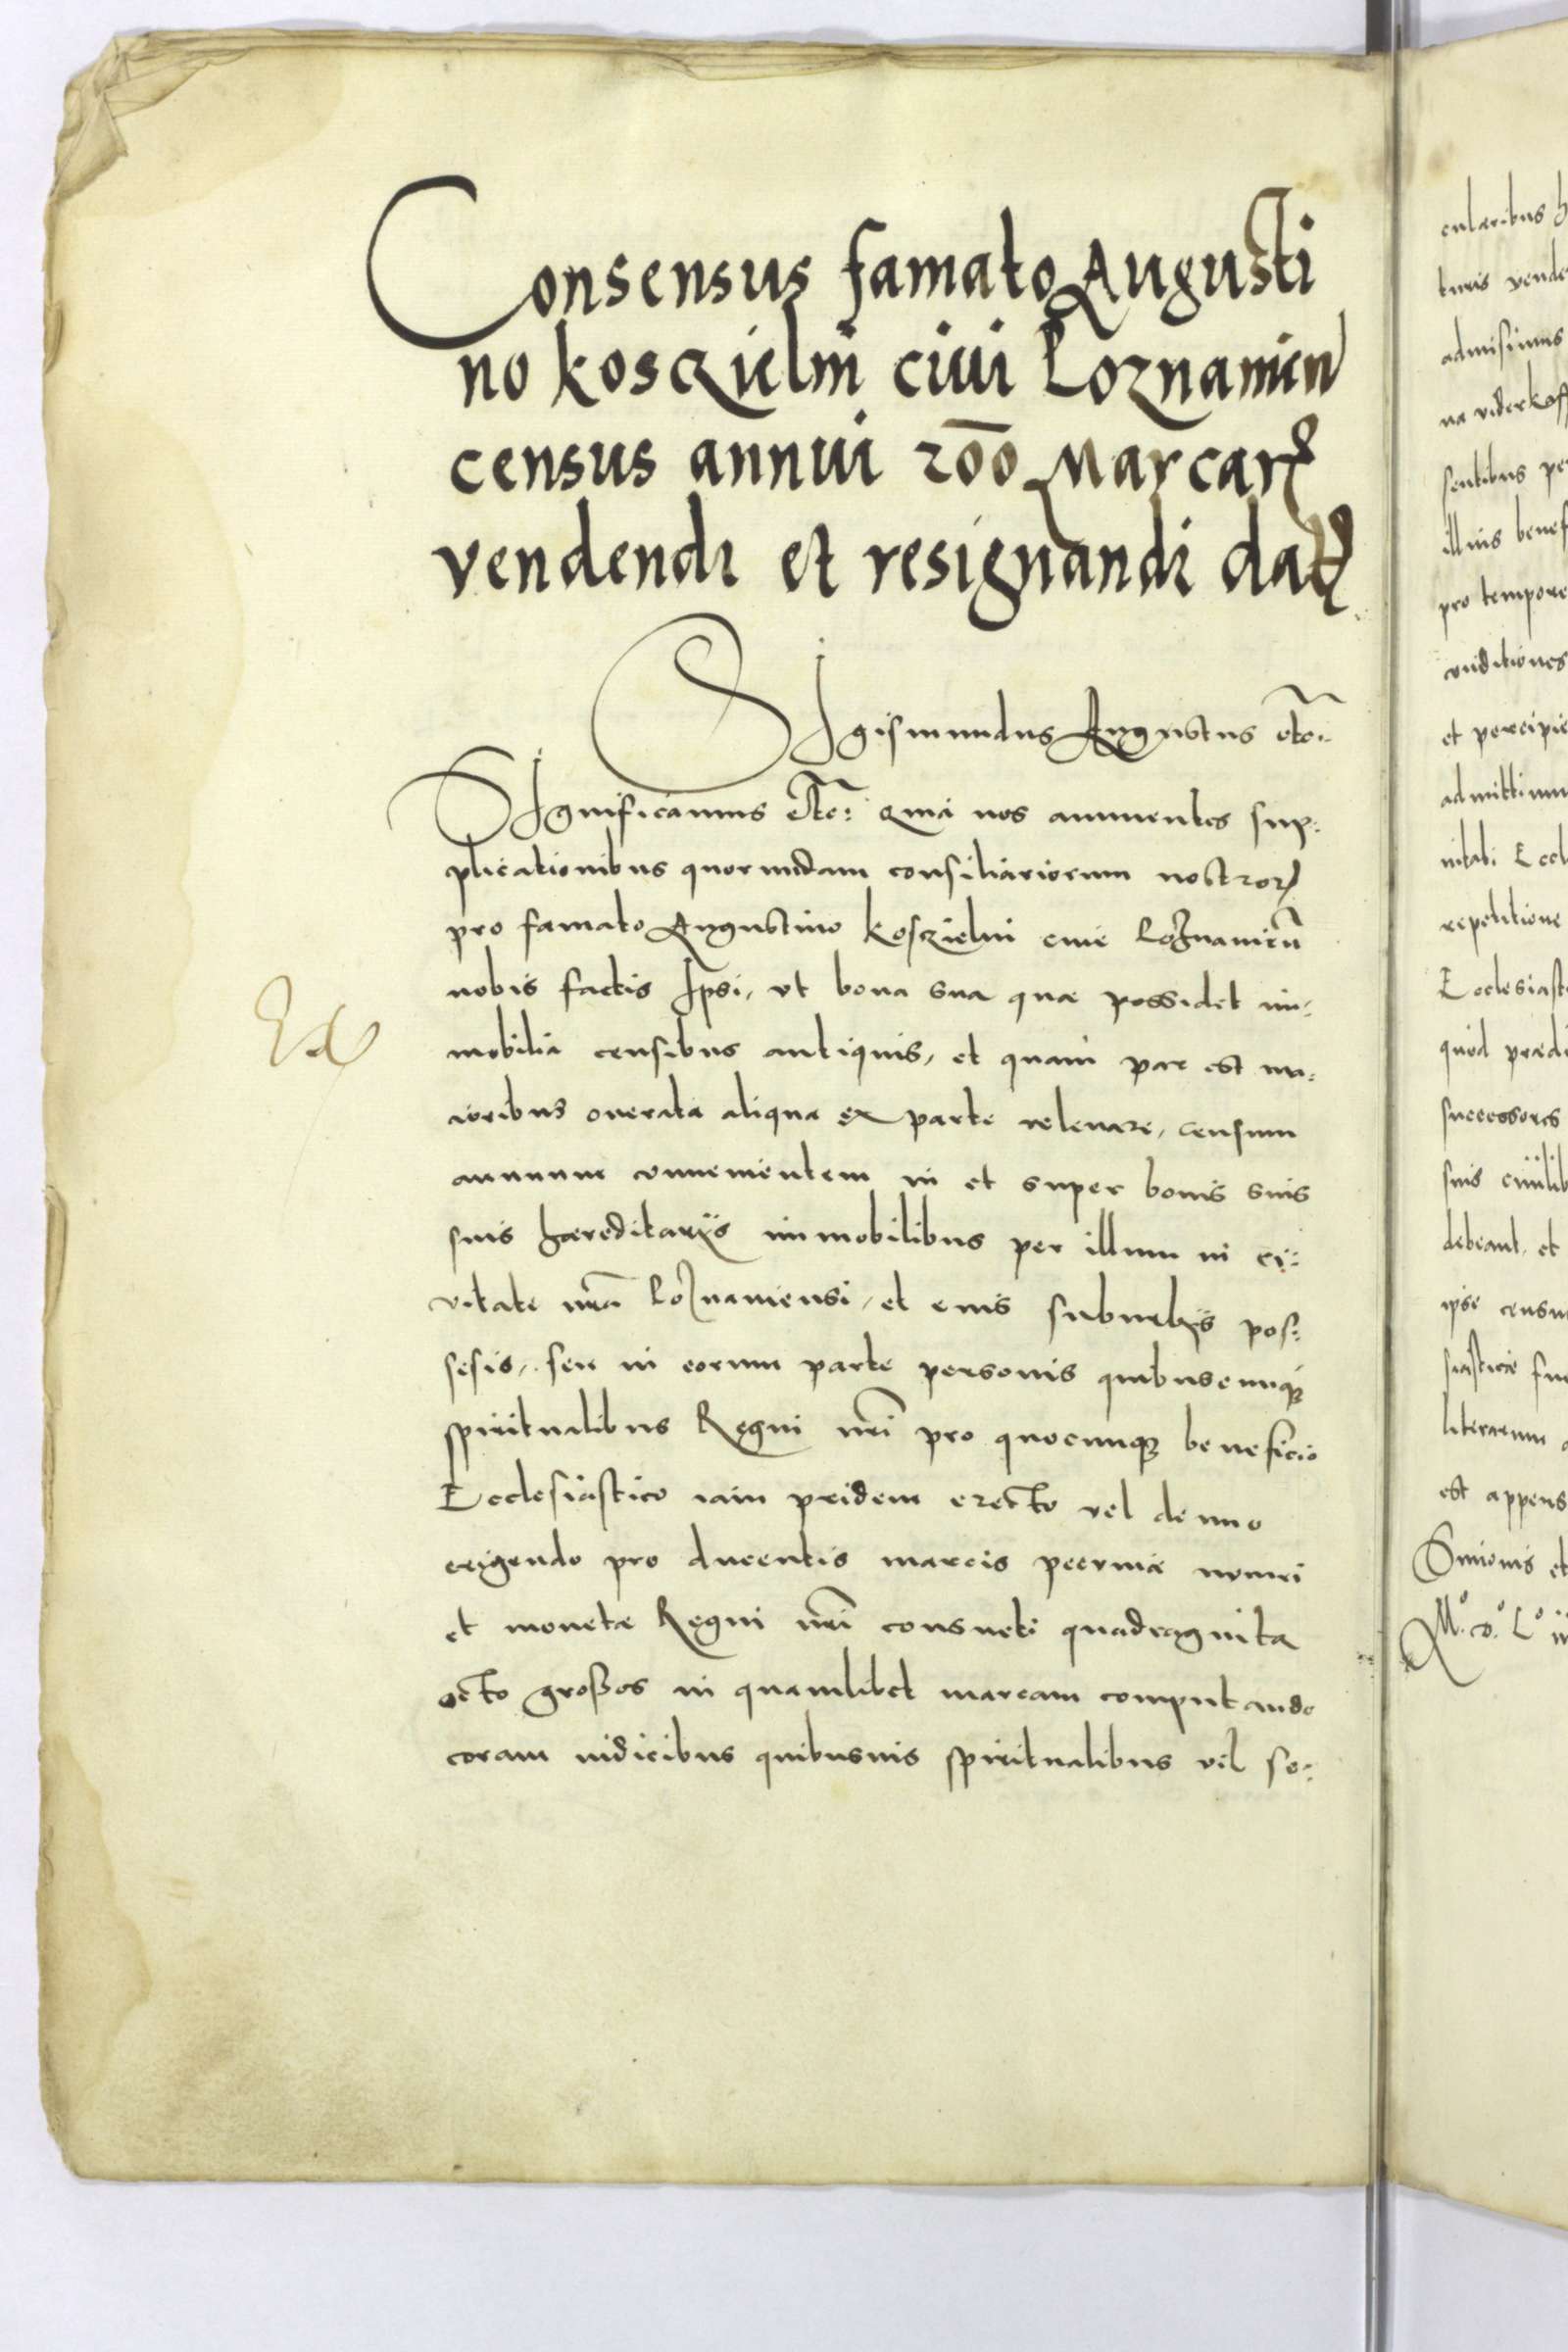 Consensus famato Augusti
no Kosczielni civi Poznanien
census annui 200 Marcarꝝ
vendendi et resignandi datꝰ
SIgismundus Augustus etc:
SIgnificamus etc: Quia nos annuentes sup:
plicationibus quorundam consiliariorum nostrorꝝ
pro famato Augustino Koszielni cive Poznanien̄
nobis factis Ipsi, ut bona sua quæ possidet im:
mobilia censibus antiquis, et quam par est ma:
ioribus onerata aliqua ex parte relevare, censum
annuum convenientem in et super bonis suis
suis hæreditarijs immobilibus per illum in ci:
vitate nr̄a Poznaniensi, et eius suburbijs pos:
sesis, seu in eorum parte personis quibuscunqꝫ
spiritualibus Regni nr̄i pro quocunqꝫ beneficio
Ecclesiastico iam pridem erecto vel denuo
erigendo pro ducentis marcis pecuniæ numeri
et monetæ Regni nr̄i consueti quadraginta
octo grossos in quamlibet marcam computando
coram iudicibus quibusvis spiritualibus vel se:
cularibus
turis vende
admisimus
na viderkaff
sentibus per
illius benef
pro tempore
conditiones
et percipie
admittimu
nitati Eccl
repetitione
Ecclesiast
quod prædi
successores
suis civilib
debeant, et
ipse censu
siasticæ fu
literarum
est appens
Simonis et
Mº. Dº. Lº